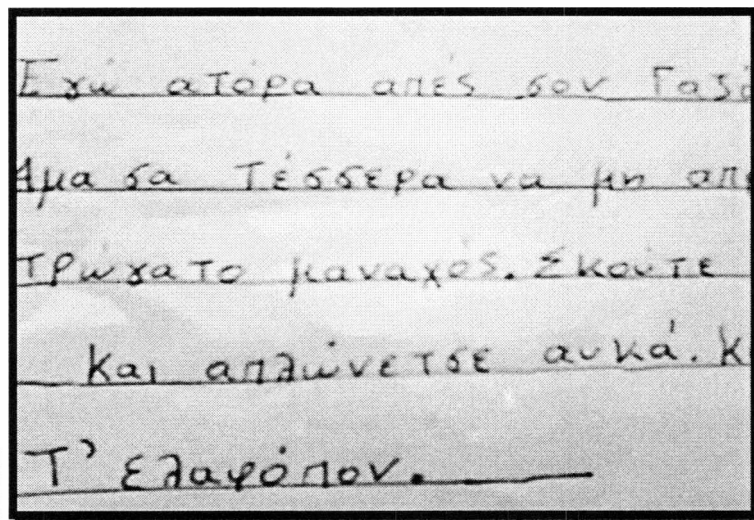 Εγώ ατόρα απές σον
Άμα σα Τέσσερα να μη
τρώγατο μαναχός. Σκούτε
Και απλώνετσε αυκά.
Τ' ελαφόπον.